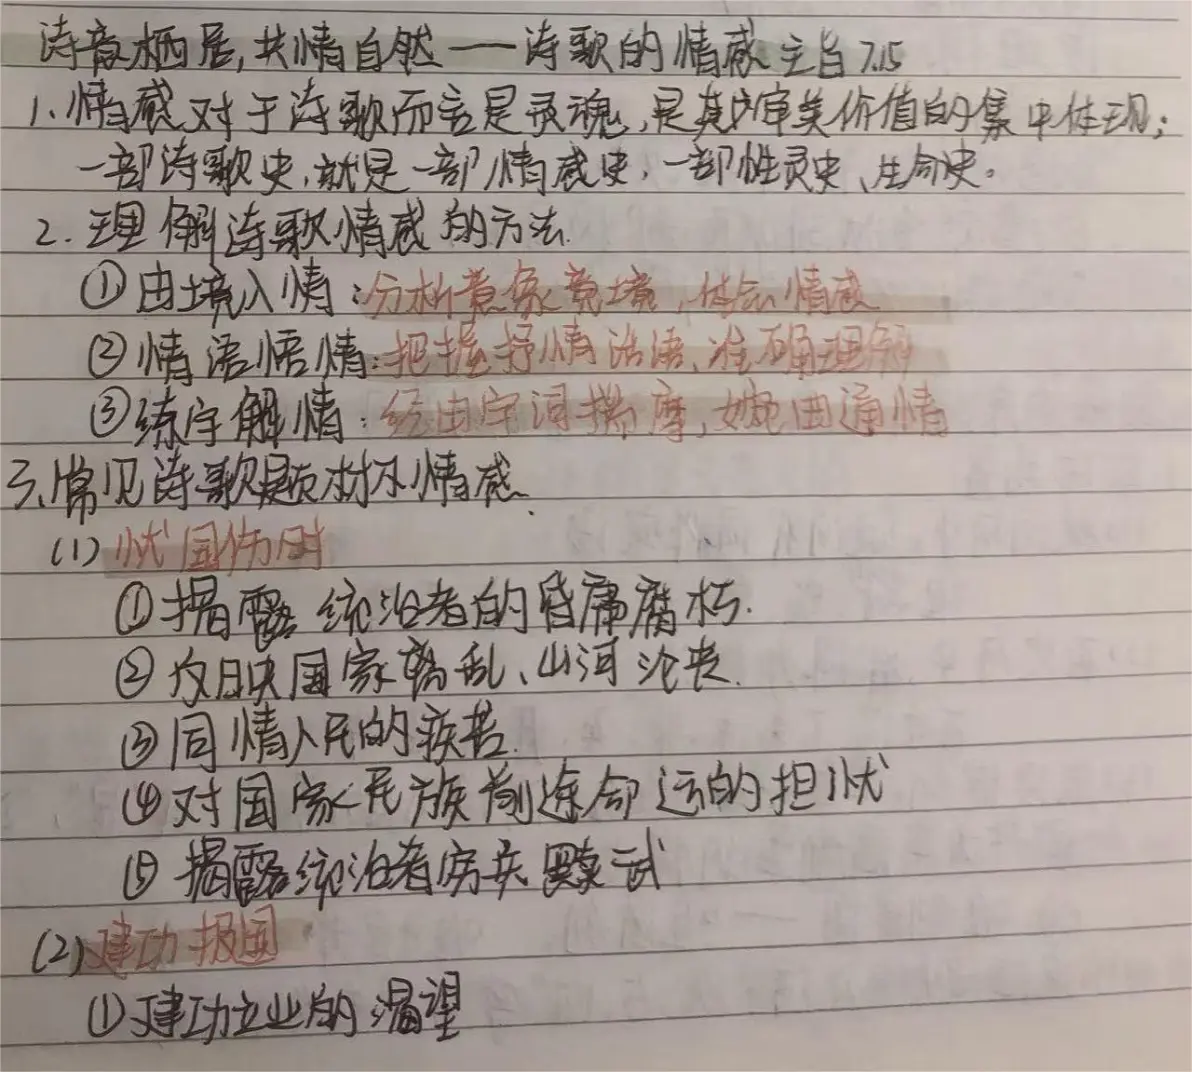 诗意栖居,共情自然——诗歌的情感主旨7.15
1.情感对于诗歌而言是灵魂,是其审美价值的集中体现;
一部诗歌史,就是一部情感史,一部性灵史、生命史。
2.理解诗歌情感的方法
①由境入情:分析意象意境,体会情感
②情语悟情:把握抒情话语,准确理解
③练字解情:经由字词揣摩,婉曲通情
三、常见诗歌题材及情感
(1)忧国伤时
①揭露统治者的昏庸腐朽.
②反映国家离乱、山河沦丧.
③同情人民的疾苦.
④对国家民族前途命运的担忧
⑤揭露统治者穷兵黩武
(2)建功报国
①建功立业的渴望